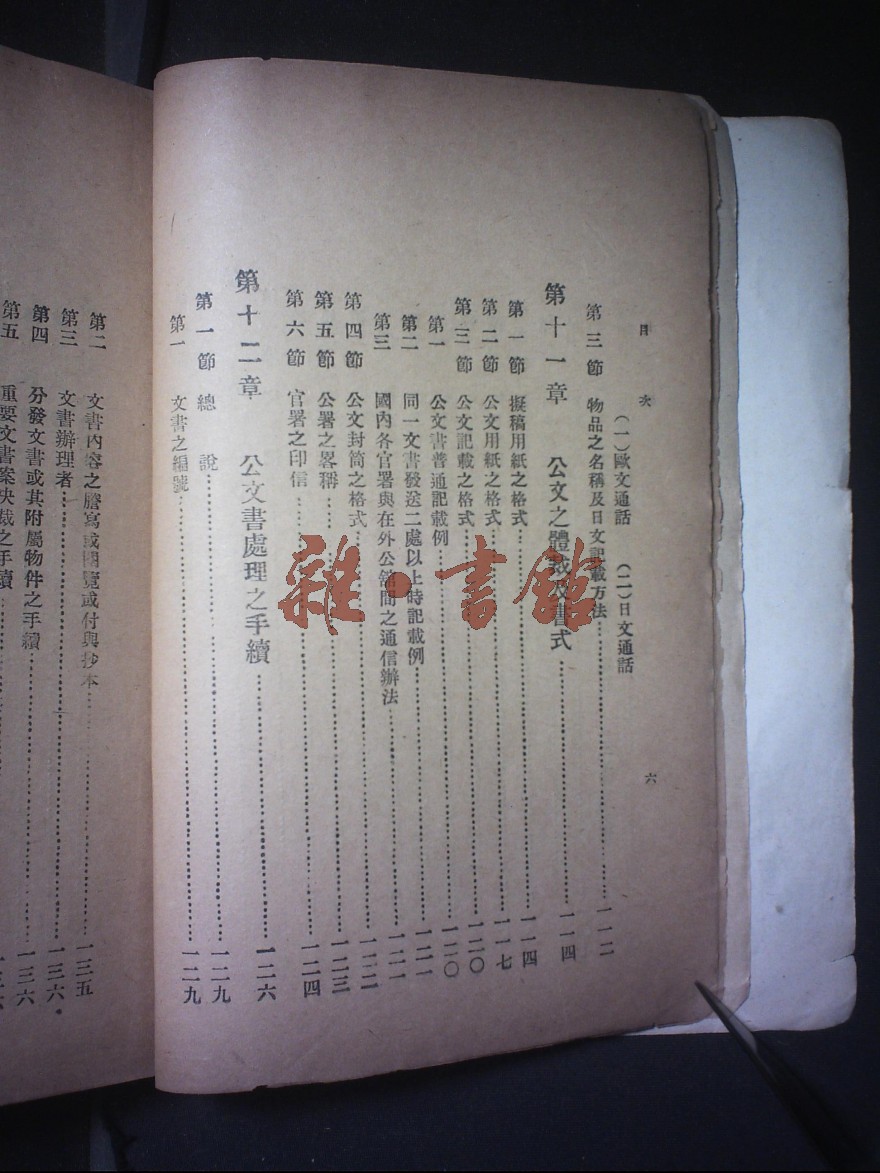 目次
六
(一)歐文通話 (二)日文通話
第三節 物品之名稱及日文記載方法……一一二
第十一章 公文之體裁及書式……一一四
第一節 擬稿用紙之格式……一一四
第二節 公文用紙之格式……一一七
第三節 公文記載之格式……一二〇
第一 公文書普通記載例……一二〇
第二 同一文書發送二處以上時記載例……一二一
第三 國內各官署與在外公館間之通信辦法……一二一
第四節 公文封筒之格式……一二二
第五節 公署之畧稱……一二三
第六節 官署之印信……一二四
第十二章 公文書處理之手續……一二六
第一節 總說……一二九
第一 文書之編號……一二九
第二 文書內容之謄寫或閱覽或付與抄本……一三五
第三 文書辦理者……一三六
第四 分發文書或其附屬物件之手續……一三六
第五 重要文書案決裁之手續……一三六
雜·書館